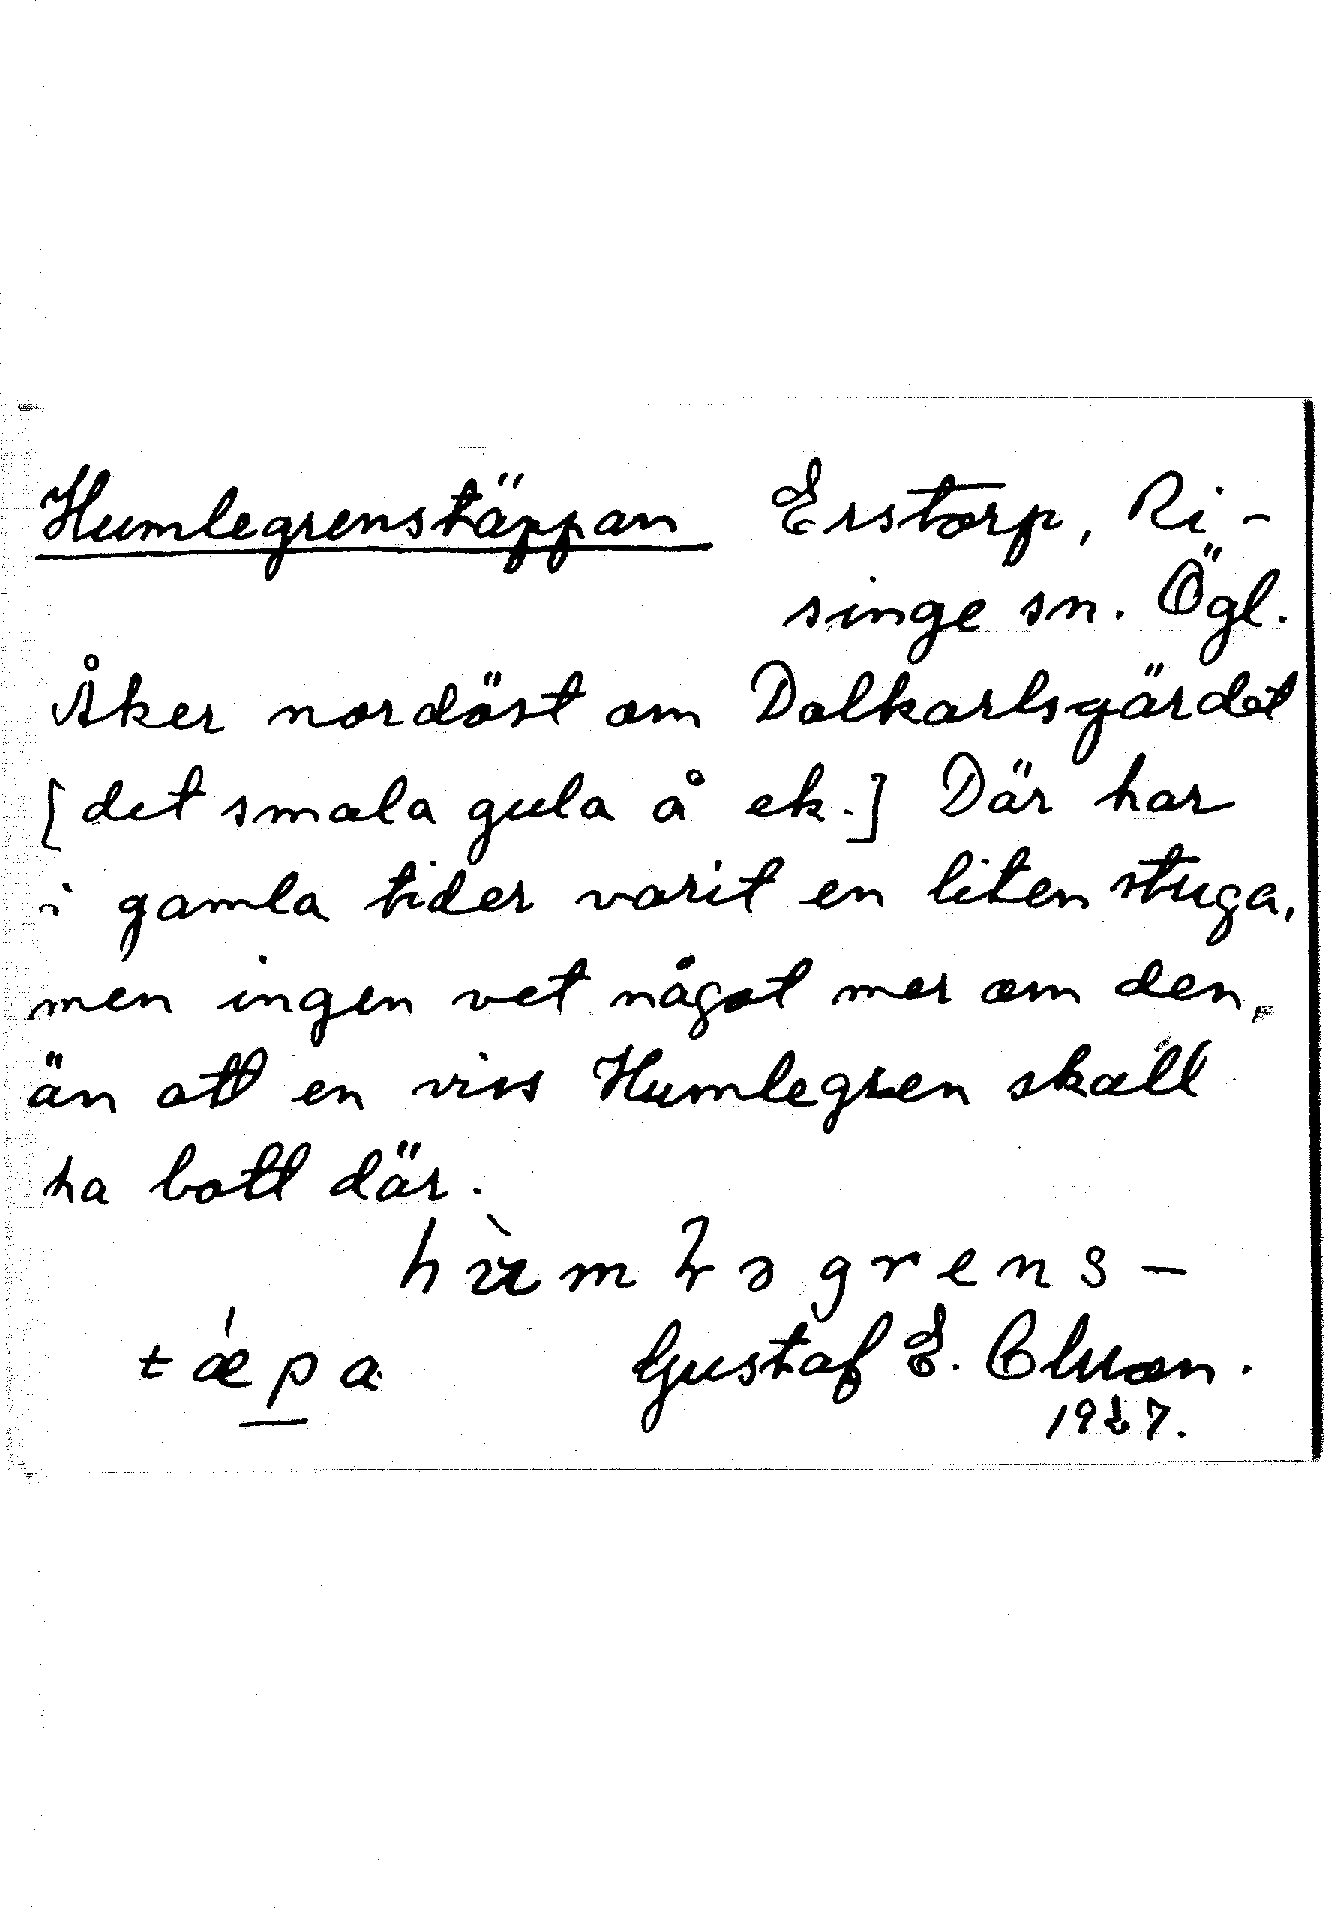 Humlegrenstäppan Erstorp, Ri-
singe sn. Ögl.
Åker nordöst om Dalkarlsgärdet
[det smala gula å ek.] Där har
i gamla tider varit en liten stuga,
men ingen vet något mer om den,
än att en viss Humlegren skall
ha bott där.
grens-
tǽpa Gustaf E.
1927.